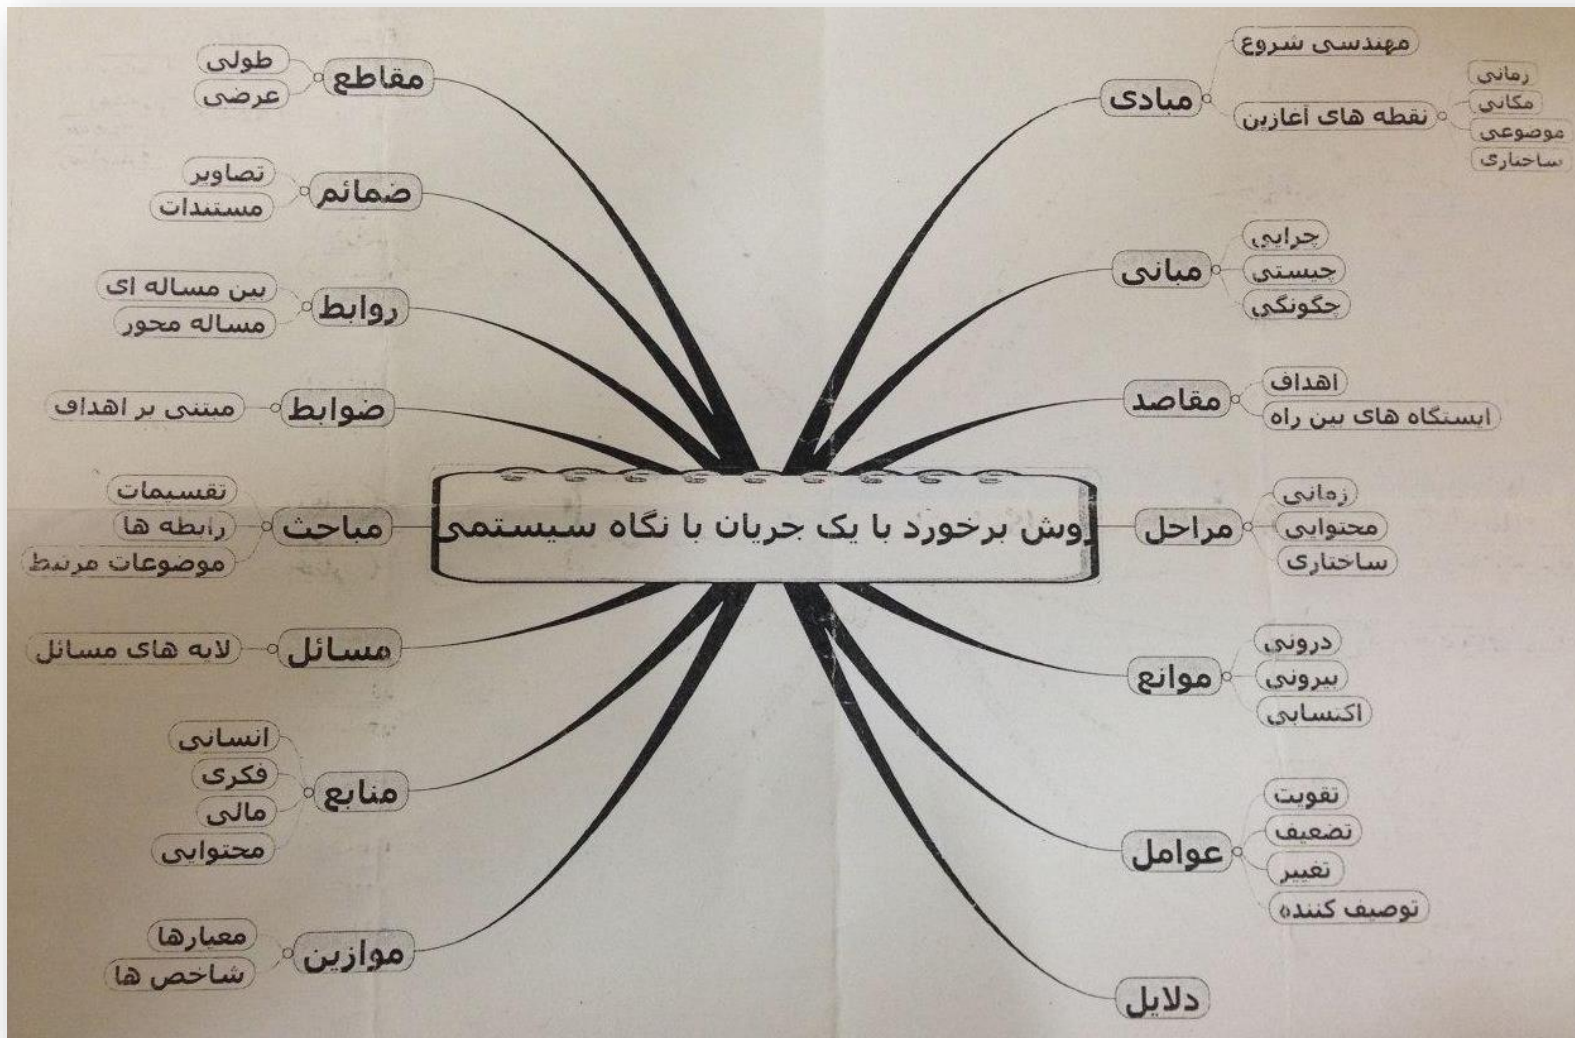 روش برخورد با یک جریان با نگاه سیستمی
مبادی
مهندسی شروع
نقطه های آغازین
زمانی
مکانی
موضوعی
ساختاری
مبانی
چرایی
چیستی
چگونگی
مقاصد
اهداف
ایستگاه های بین راه
مراحل
زمانی
محتوایی
ساختاری
موانع
درونی
بیرونی
اکتسابی
عوامل
تقویت
تضعیف
تغییر
توصیف کننده
دلایل
مقاطع
طولی
عرضی
ضمائم
تصاویر
مستندات
روابط
بین مساله ای
مساله محور
ضوابط
مبتنی بر اهداف
مباحث
تقسیمات
رابطه ها
موضوعات مرتبط
مسائل
لایه های مسائل
منابع
انسانی
فکری
مالی
محتوایی
موازین
معیارها
شاخص ها